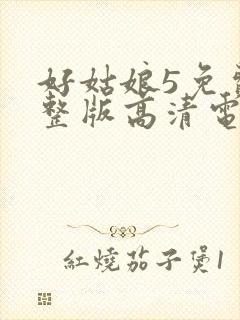 好姑娘5免費
整版高清電
紅燒茄子煲1